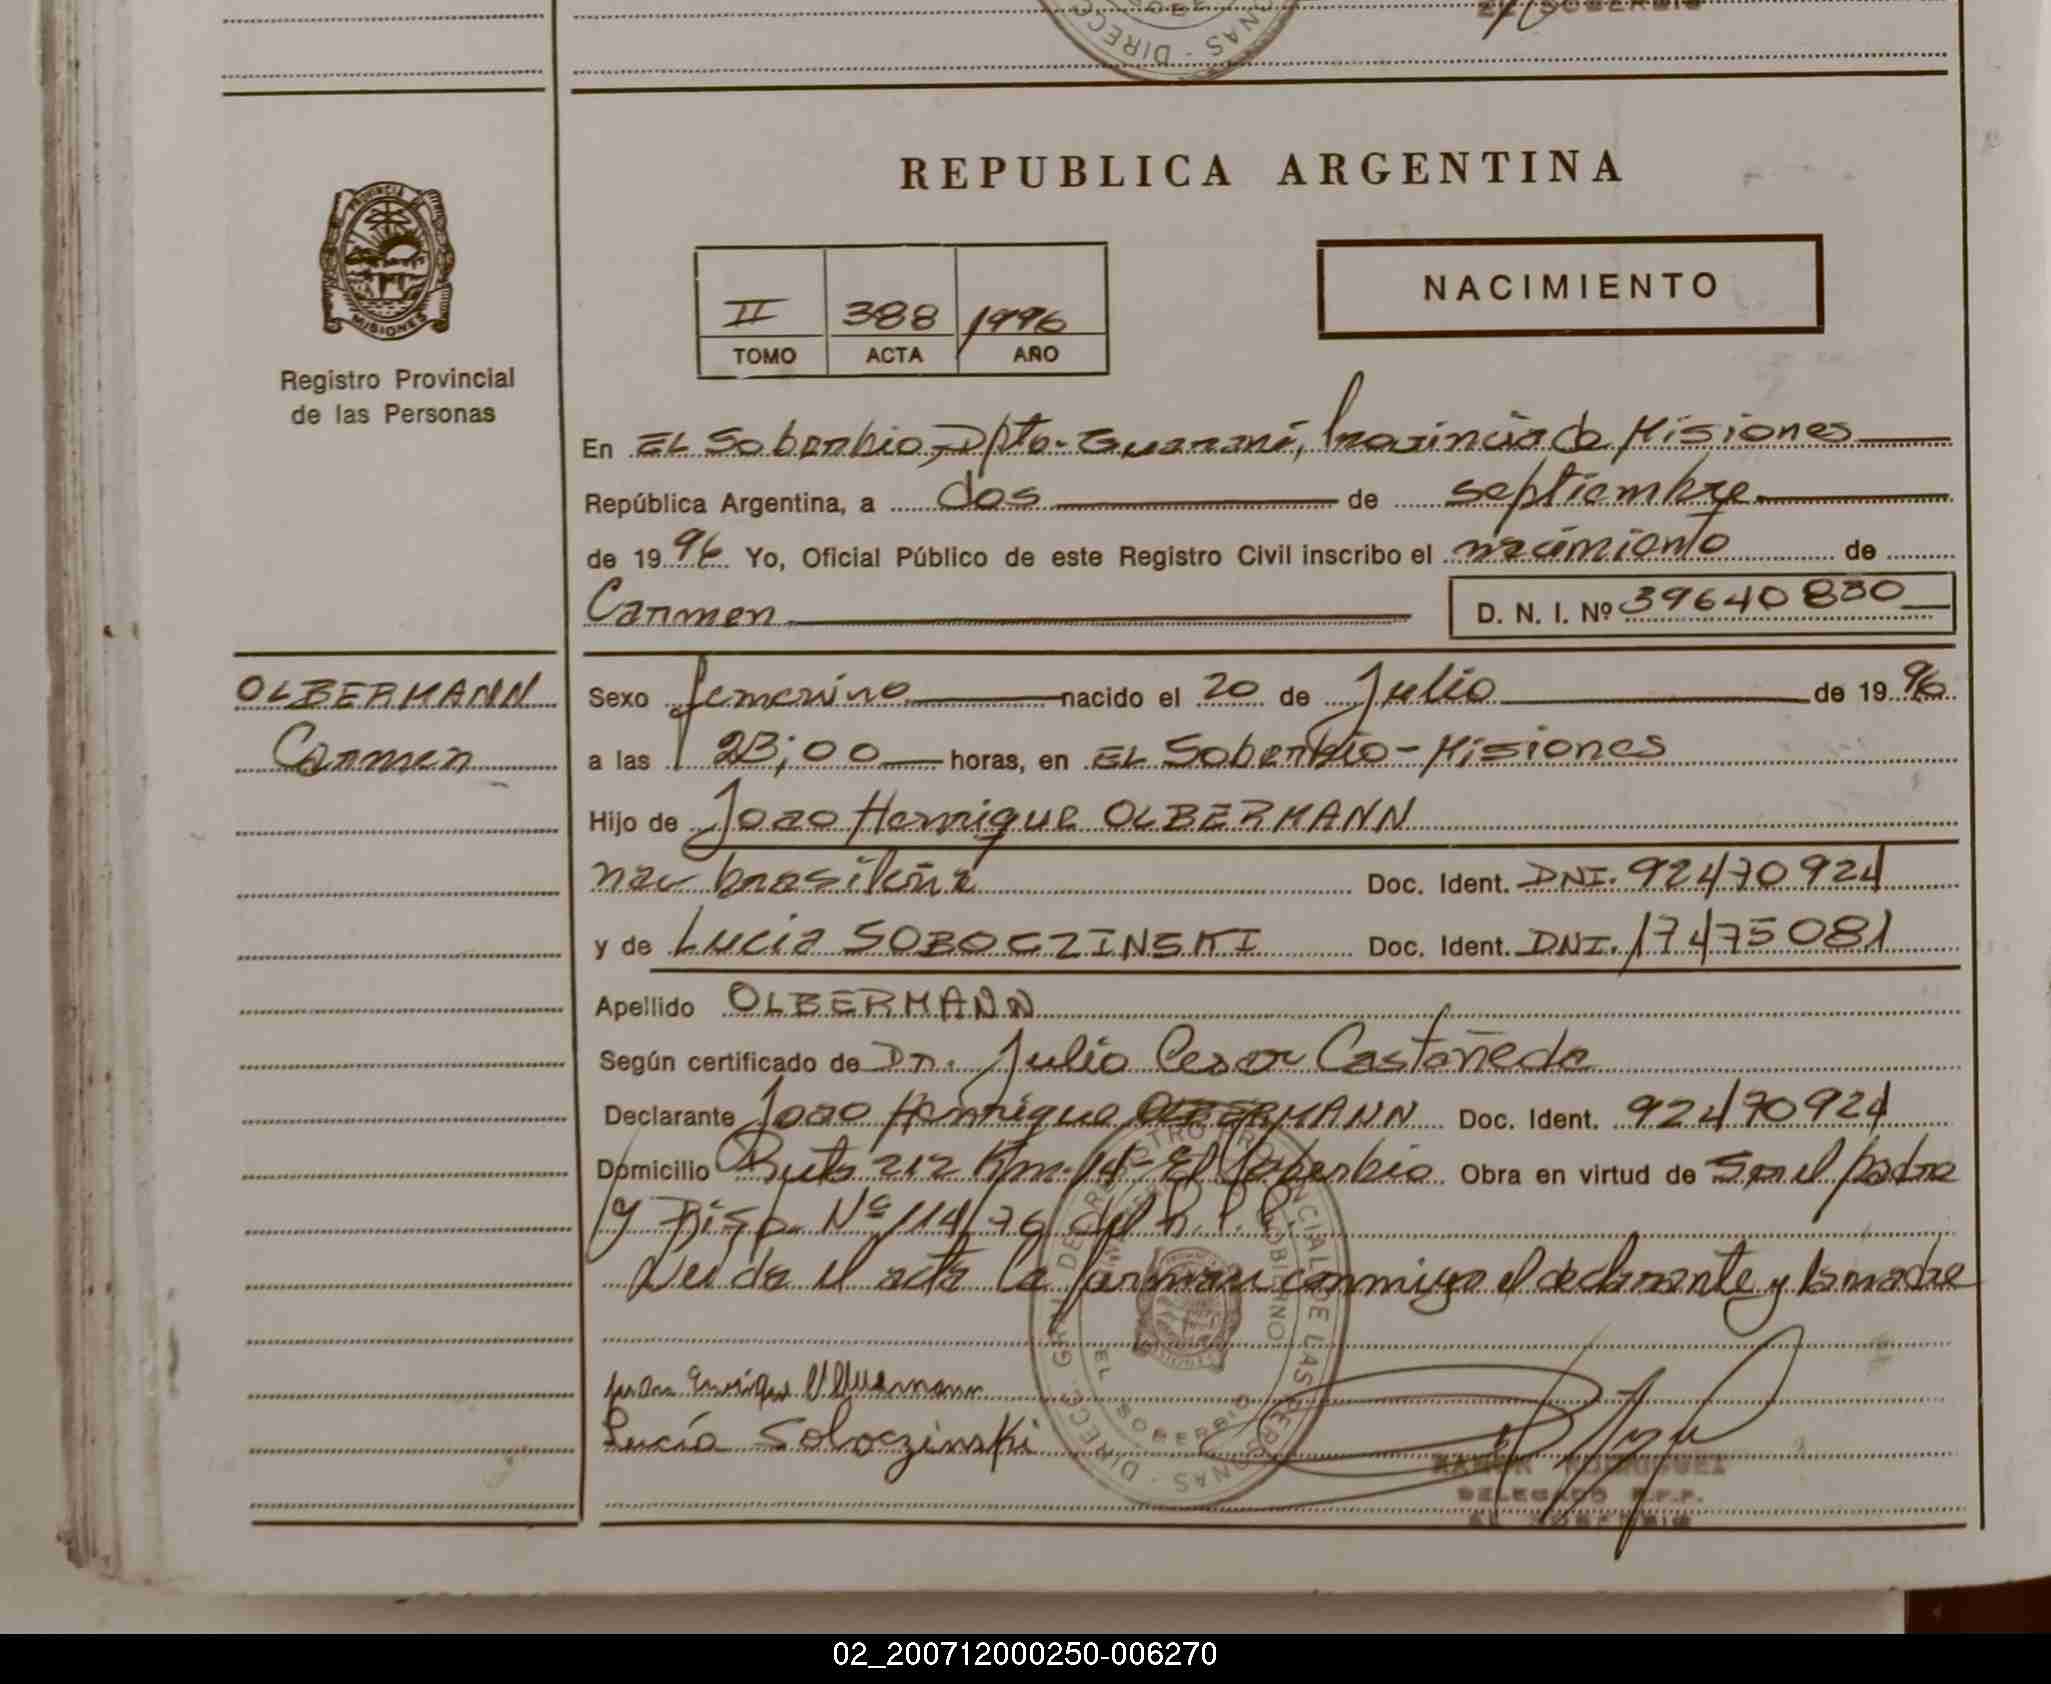 EL SOBERBIO
REPUBLICA ARGENTINA
PROVINCIA DE
MISIONES
Registro Provincial
de las Personas
NACIMIENTO
II 388 1996
TOMO ACTA AÑO
En EL Soberbio, Dpto. Guaraní, Provincia de Misiones
República Argentina, a dos de septiembre
de 1996 Yo, Oficial Público de este Registro Civil inscribo el nacimiento de
Carmen D. N. I. Nº 39640830
OLBERMANN
Carmen
Sexo femenino nacido el 20 de Julio de 1996
a las 23;00 horas, en EL Soberbio - Misiones
Hijo de Joao Henrique OLBERMANN
nac brasileña Doc. Ident. DNI. 92470924
y de Lucia SOBOCZINSKI Doc. Ident. DNI. 17475081
Apellido OLBERMANN
Según certificado de Dr. Julio Cesar Castañeda
Declarante Joao Henrique OLBERMANN Doc. Ident. 92470924
Domicilio Ruta 212 Km. 14 - El Soberbio Obra en virtud de Ser el padre
y Disp. Nº 114/76 del R.P.P.
Leída el acta la firman conmigo el declarante y la madre
Lucía Soboczinski
DELEGADO R.P.P.
EL SOBERBIO
02_200712000250-006270